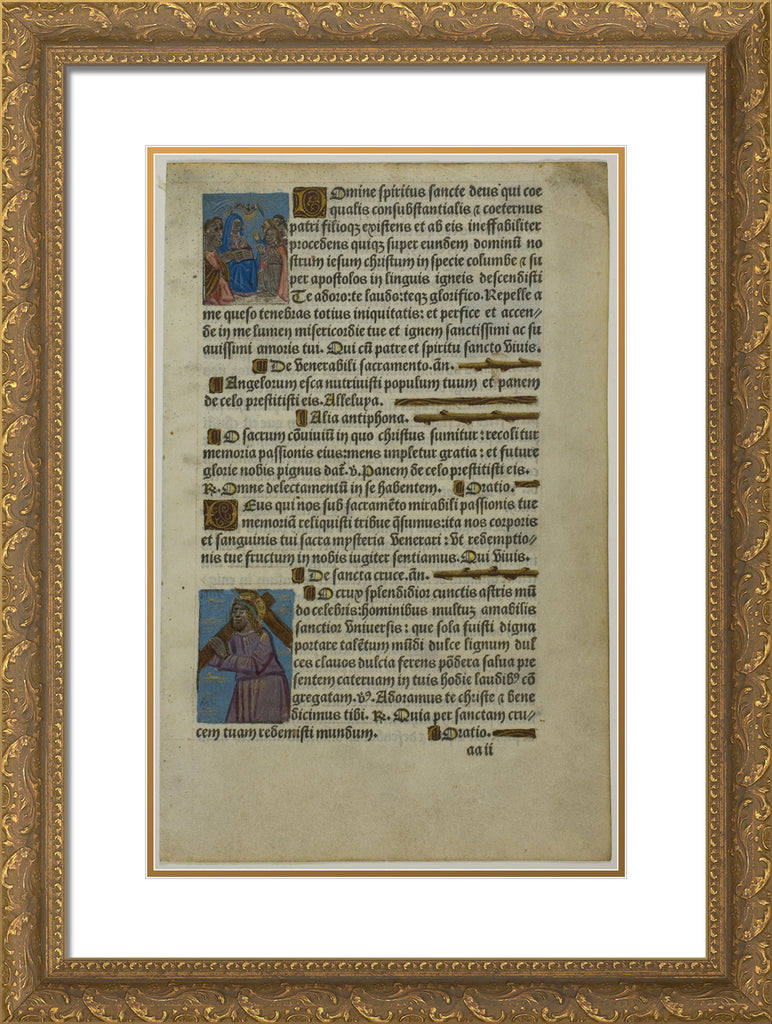 Domine spiritus sancte deus qui coe
qualis consubstantialis ⁊ coeternus
patri filioqꝫ existens et ab eis ineffabiliter
procedens quiqꝫ super eundem dominū no
strum iesum christum in specie columbe ⁊ su
per apostolos in linguis igneis descendisti
Te adoro: te laudo: teqꝫ glorifico. Repelle a
me queso tenebras totius iniquitatis: et perfice et accen⸗
de in me lumen misericordie tue et ignem sanctissimi ac su
auissimi amoris tui. Qui cū patre et spiritu sancto viuis.
De venerabili sacramento. añ.
Angelorum esca nutriuisti populum tuum et panem
de celo prestitisti eis. Alleluya.
Alia antiphona.
O sacrum cōuiuiū in quo christus sumitur: recolitur
memoria passionis eius: mens impletur gratia: et future
glorie nobis pignus dat̄. v. Panem de celo prestitisti eis.
R. Omne delectamentū in se habentem. Oratio.
Deus qui nos sub sacramēto mirabili passionis tue
memoriā reliquisti tribue q̄sumus: ita nos corporis
et sanguinis tui sacra mysteria venerari: vt redemptio⸗
nis tue fructum in nobis iugiter sentiamus. Qui viuis.
De sancta cruce. añ.
O crux splendidior cunctis astris mū
do celebris: hominibus multuꝫ amabilis
sanctior vniuersis: que sola fuisti digna
portare talētum mūdi dulce lignum dul
ces clauos dulcia ferens pōdera salua pre
sentem cateruam in tuis hodie laudibꝰ cō
gregatam. v. Adoramus te christe ⁊ bene
dicimus tibi. R. Quia per sanctam cru⸗
cem tuam redemisti mundum. Oratio.
aa ii